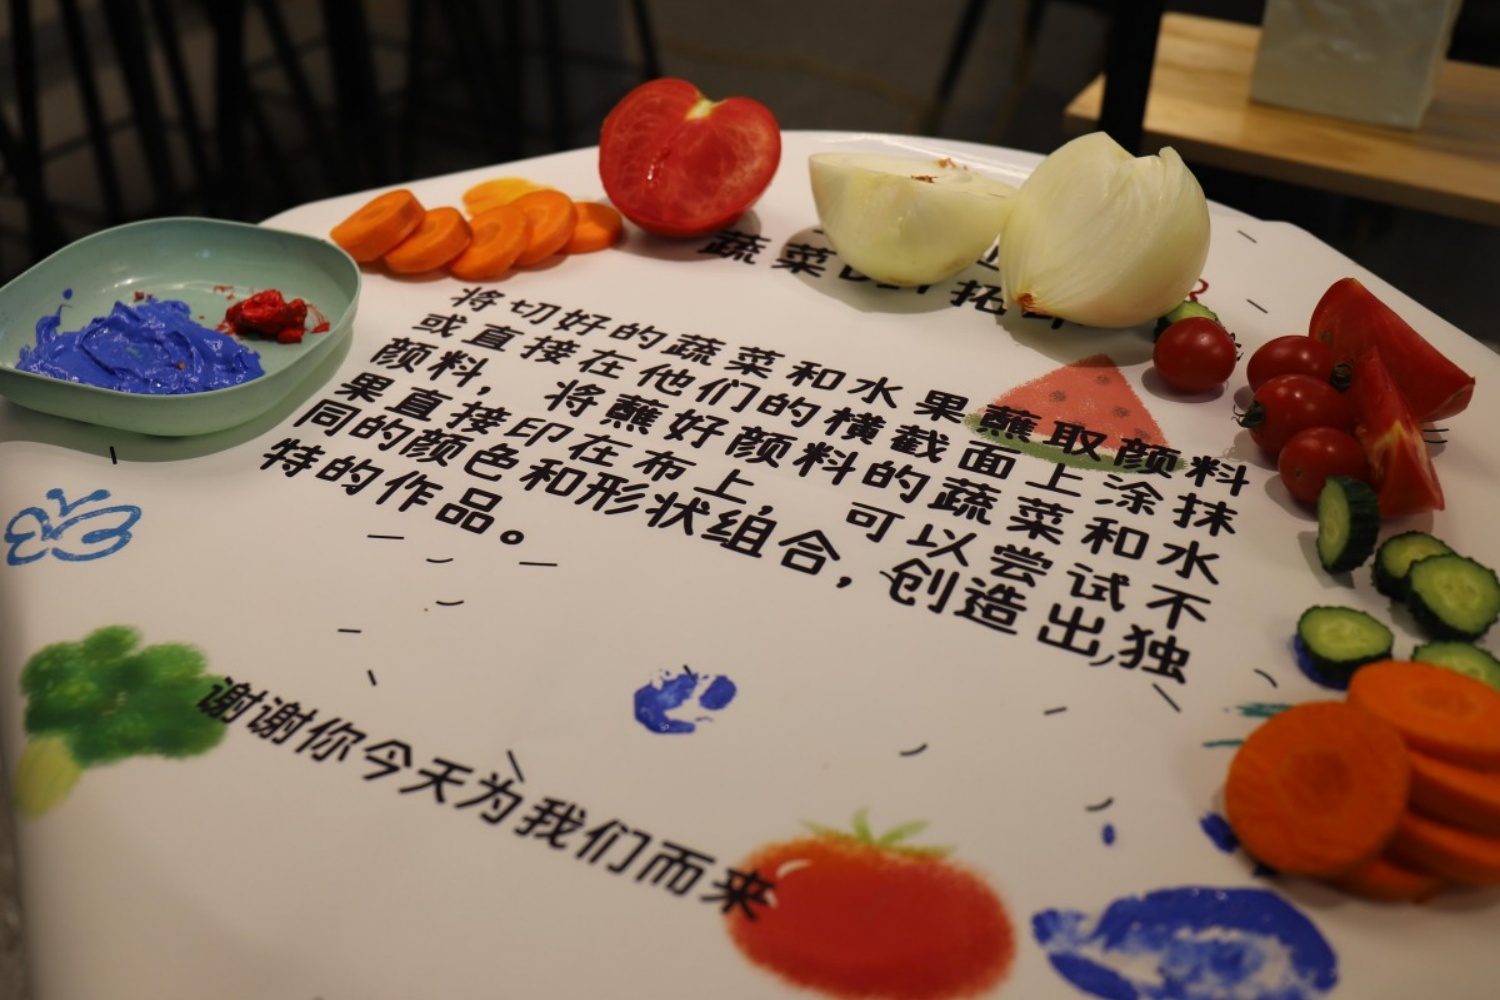 蔬菜
拓
将切好的蔬菜和水果蘸取颜料
或直接在他们的横截面上涂抹
颜料，将蘸好颜料的蔬菜和水
果直接印在布上，可以尝试不
同的颜色和形状组合，创造出独
特的作品。
谢谢你今天为我们而来